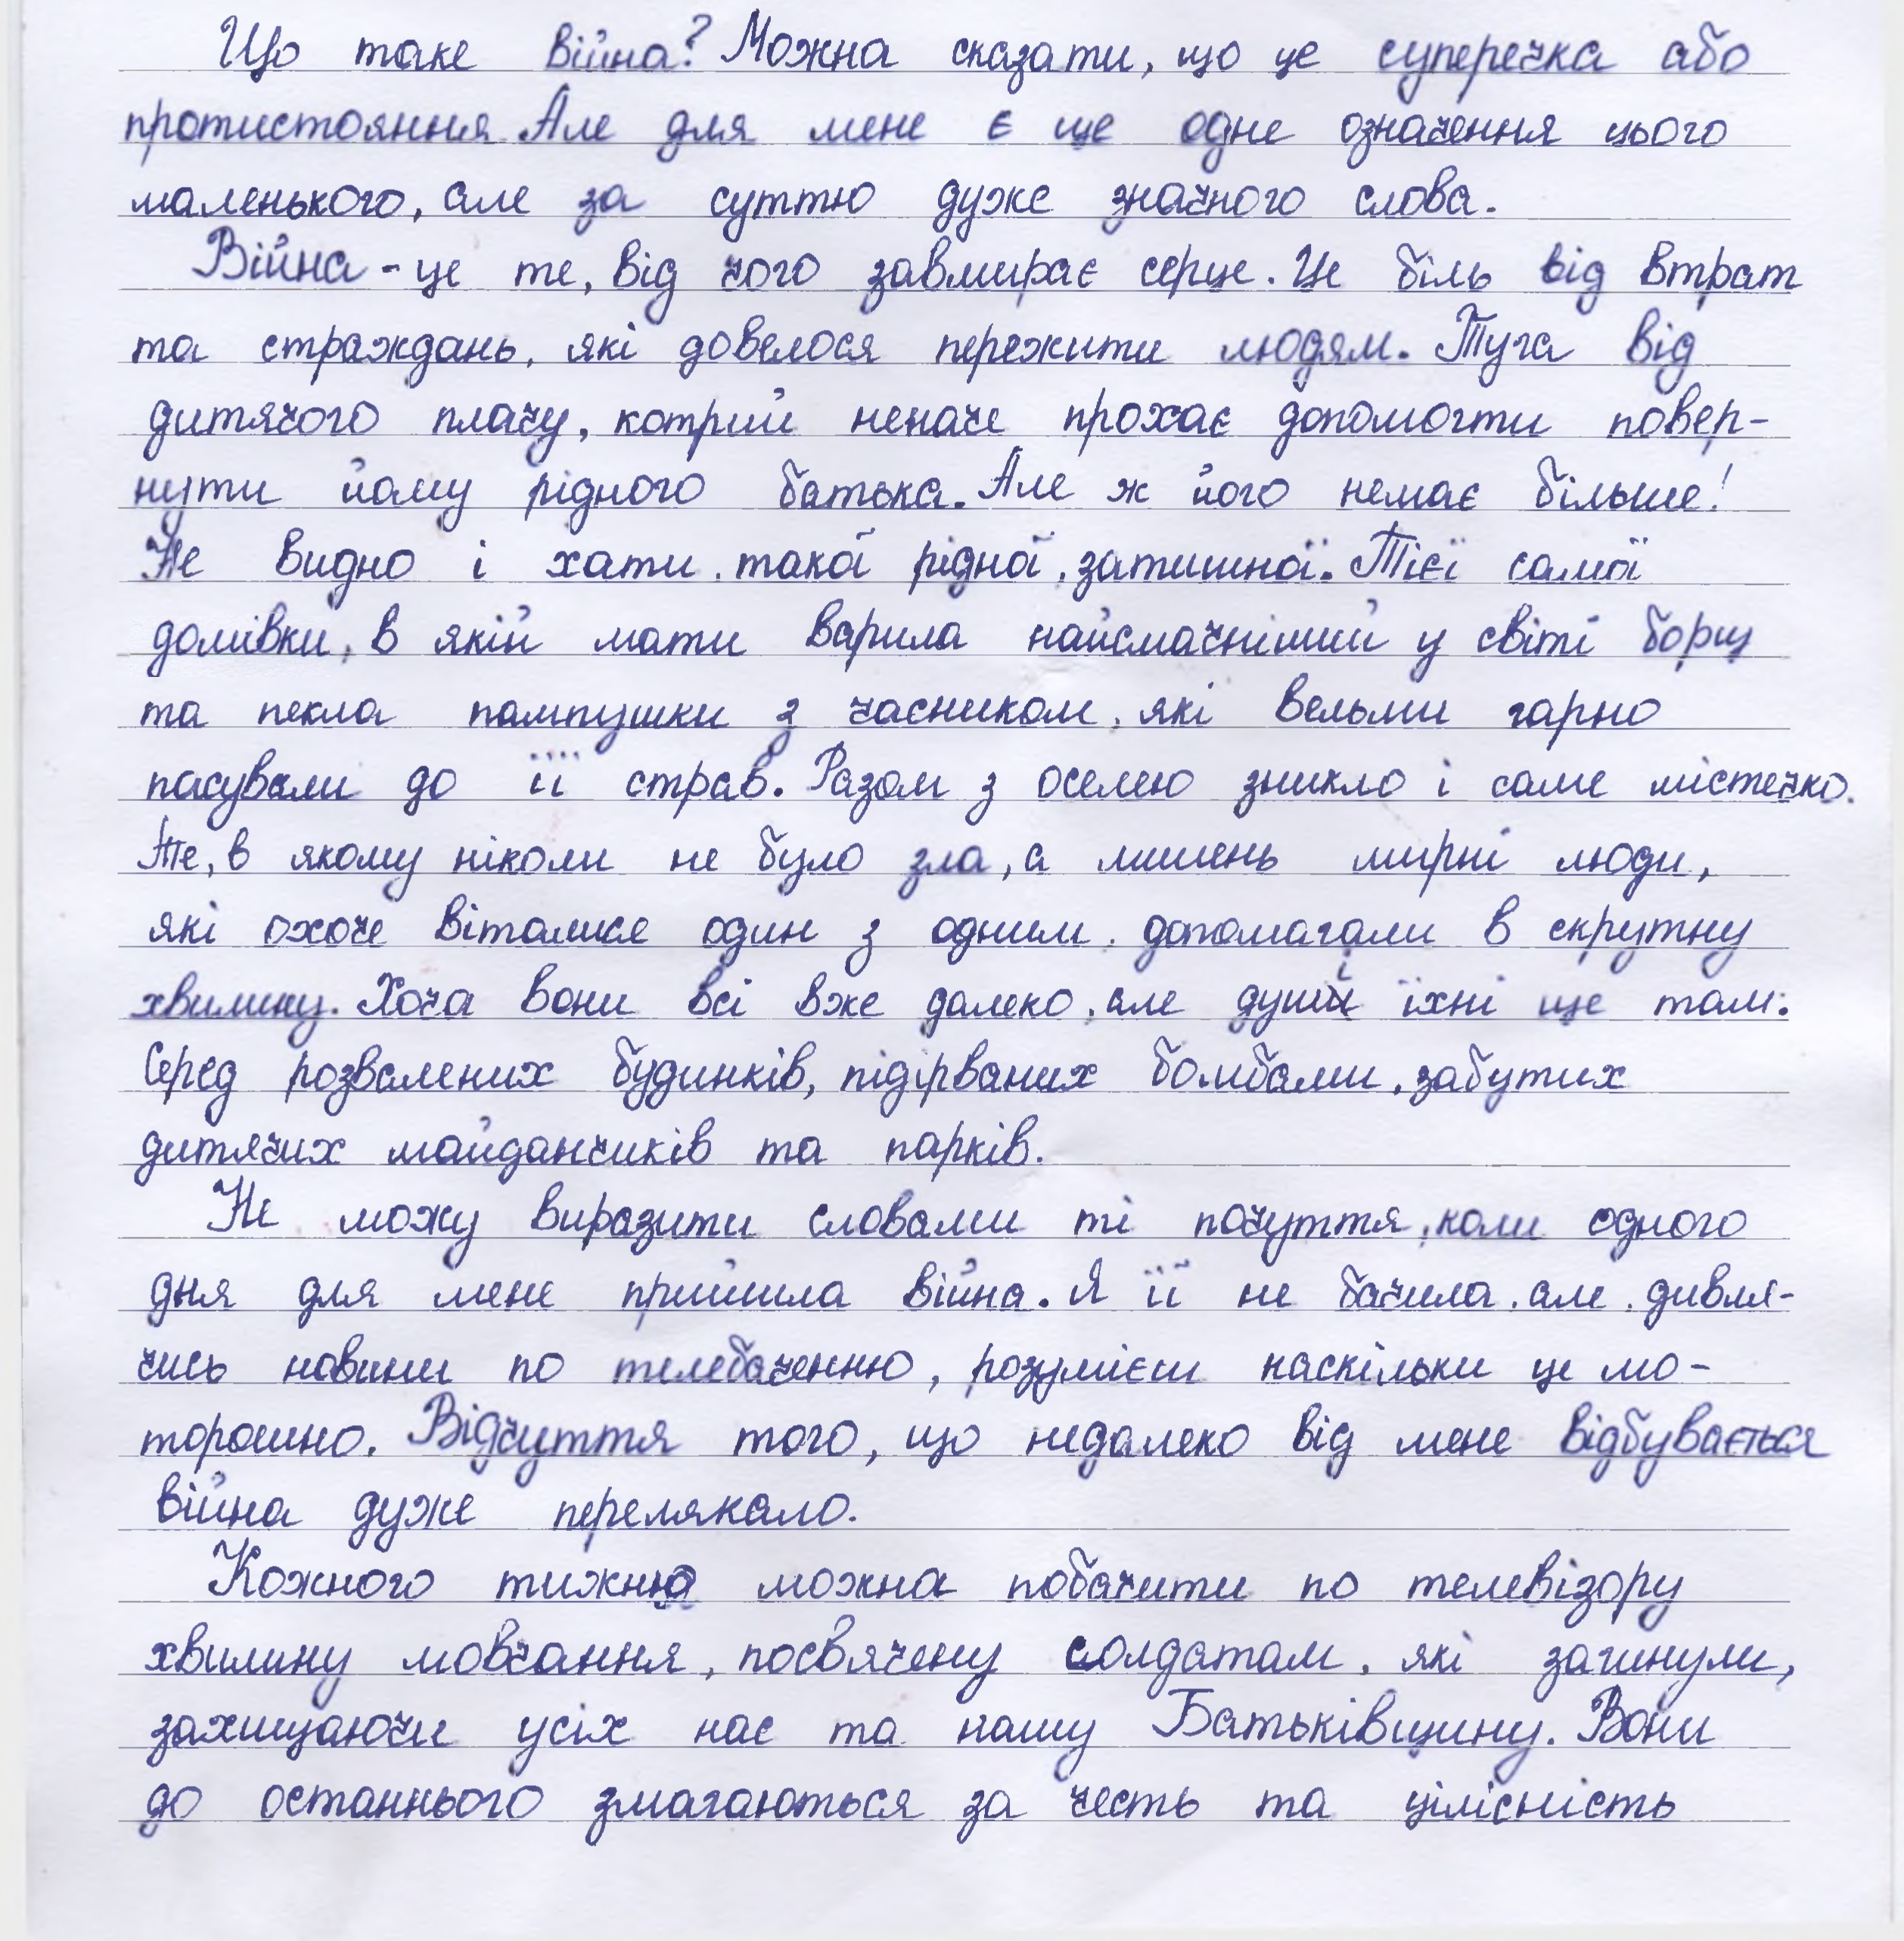 Що таке війна? Можна сказати, що це суперечка або
протистояння. Але для мене є ще одне означення цього
маленького, але за суттю дуже значного слова.
Війна - це те, від чого завмирає серце. Це біль від втрат
та страждань, які довелося пережити людям. Туга від
дитячого плачу, котрий неначе прохає допомогти повер-
нути йому рідного батька. Але ж його немає більше!
Не видно і хати, такої рідної, затишної. Тієї самої
домівки, в якій мати варила найсмачніший у світі борщ
та пекла пампушки з часником, які вельми гарно
пасували до її страв. Разом з оселею зникло і саме містечко.
Те, в якому ніколи не було зла, а лишень мирні люди,
які охоче віталися один з одним, допомагали в скрутну
хвилину. Хоча вони всі вже далеко, але душі їхні ще там.
Серед розвалених будинків, підірваних бомбами, забутих
дитячих майданчиків та парків.
Не можу виразити словами ті почуття, коли одного
дня для мене прийшла війна. Я її не бачила, але, дивля-
чись новини по телебаченню, розумієш наскільки це мо-
торошно. Відчуття того, що недалеко від мене відбувається
війна дуже перелякало.
Кожного тижня можна побачити по телевізору
хвилину мовчання, посвячену солдатам, які загинули,
захищаючи усіх нас та нашу Батьківщину. Вони
до останнього змагаються за честь та цілісність